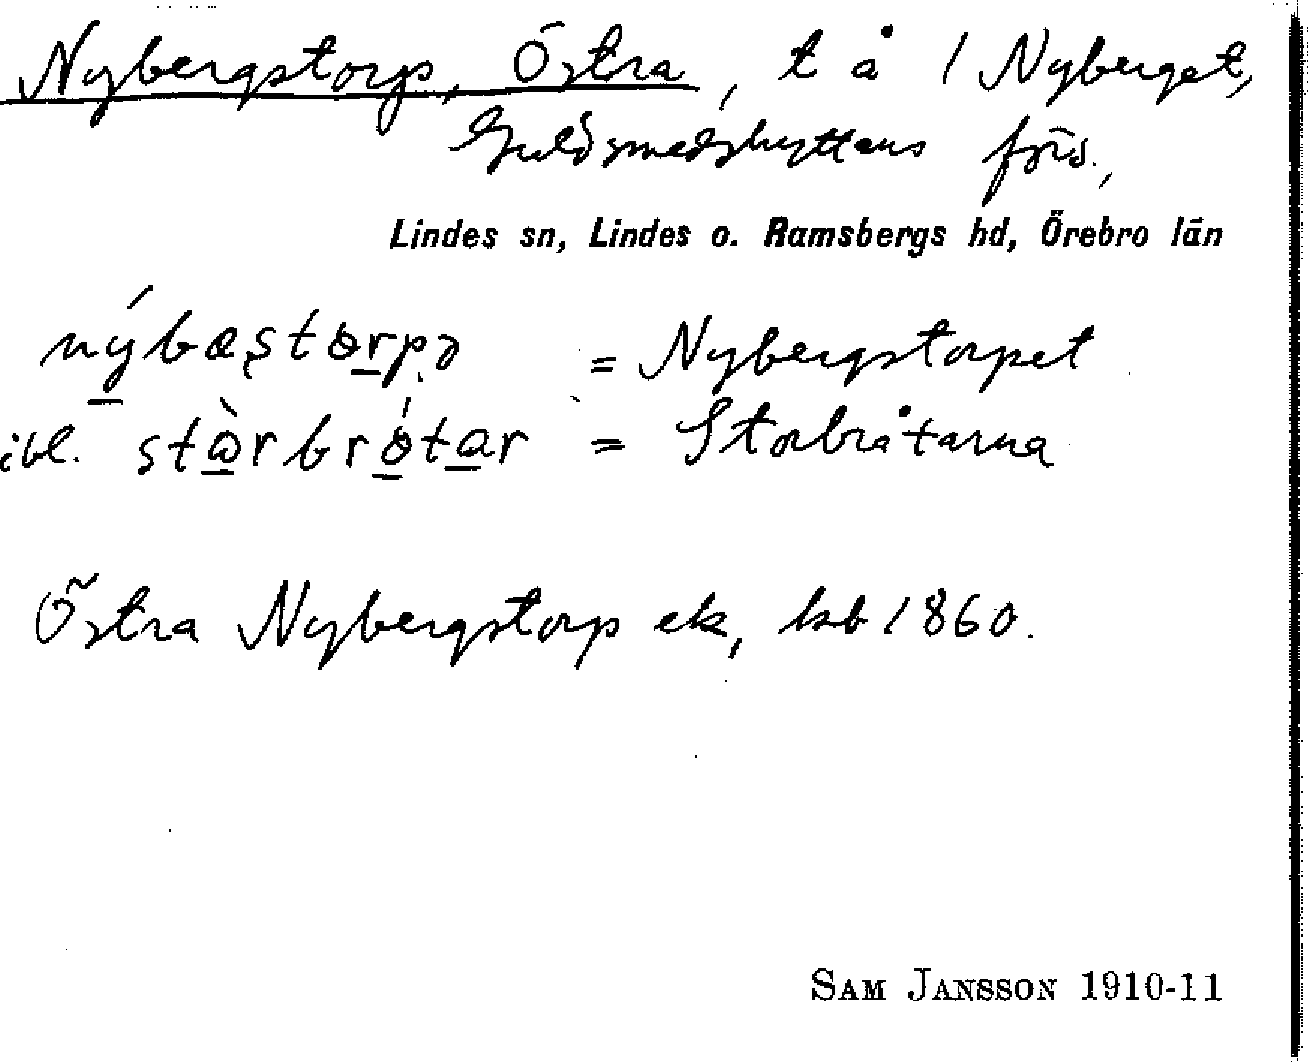 Nybergstorp, Östra, t å 1 Nyberget,
Guldsmedshyttans förs.,
Lindes sn, Lindes o. Ramsbergs hd, Örebro län
= Nybergstorpet
ibl. = Storbråtarna
Östra Nybergstorp ek, kb 1860.
SAM JANSSON 1910-11